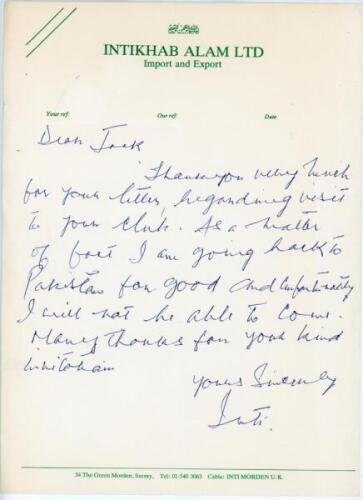 INTIKHAB ALAM LTD
Import and Export
Your ref:
Our ref:
Date
Dear Jack
Thank you very much
for your letter, regarding visit
to your club. As a matter
of fact I am going back to
Pakistan for good and unfortunately
I will not be able to come.
Many thanks for your kind
invitation
Yours Sincerely
Inti.
34 The Green Morden, Surrey, Tel: 01-540 3063 Cable: INTI MORDEN U.K.